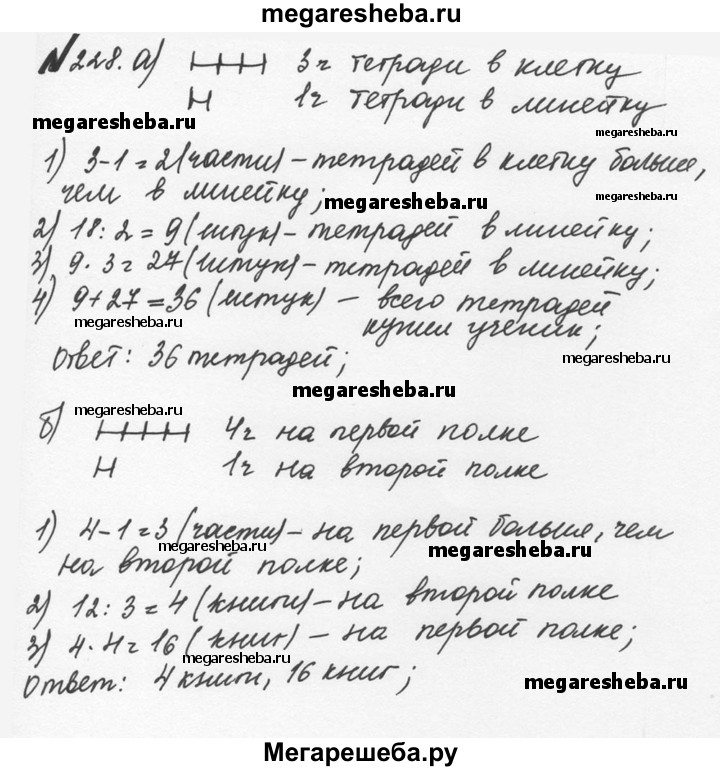 megaresheba.ru
№228. а) 3ч тетради в клетку
1ч тетради в линейку
megaresheba.ru
megaresheba.ru
1) 3-1=2(части) - тетрадей в клетку больше,
чем в линейку;
megaresheba.ru
megaresheba.ru
2) 18:2=9(штук) - тетрадей в линейку;
3) 9·3=27(штук) - тетрадей в линейку;
4) 9+27=36(штук) - всего тетрадей
megaresheba.ru
купил ученик;
Ответ: 36 тетрадей;
megaresheba.ru
megaresheba.ru
megaresheba.ru
б) 4ч на первой полке
1ч на второй полке
1) 4-1=3(части) - на первой больше, чем
megaresheba.ru
megaresheba.ru
на второй полке;
2) 12:3=4(книги) - на второй полке
3) 4·4=16(книг) - на первой полке;
megaresheba.ru
Ответ: 4 книги, 16 книг;
megaresheba.ru
Мегарешеба.ру